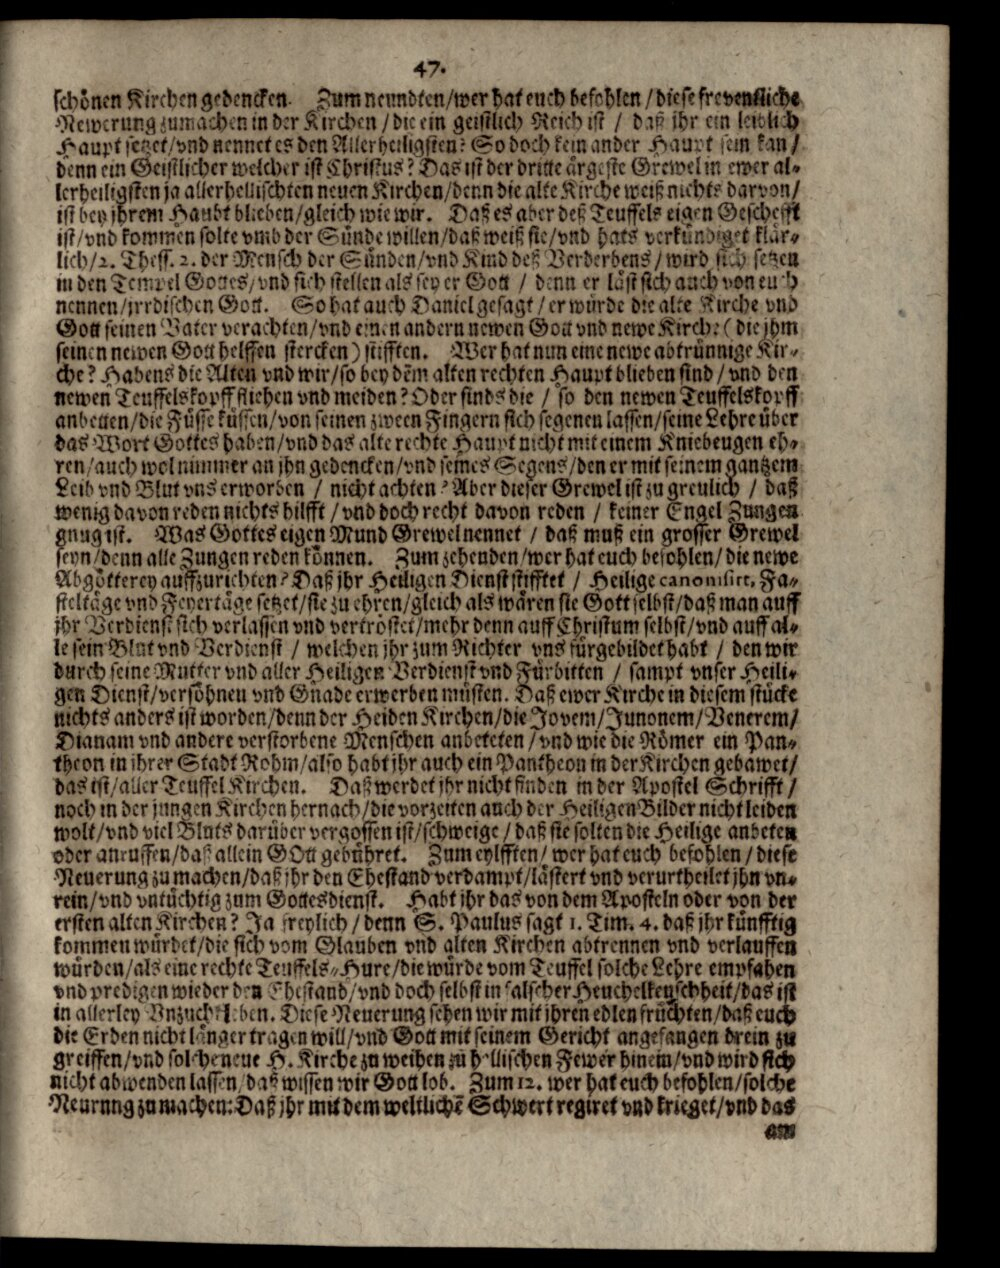 47.
schönen Kirchen gedencken. Zum neundten/wer hat euch befohlen/diese freventliche
Newerung zumachen in der Kirchen/die ein geistlich Reich ist / daß jhr ein leiblich
Haupt setzet/vnd nennet es den Allerheiligsten? So doch kein ander Haupt sein kan/
denn ein Geistlicher welcher ist Christus? Das ist der dritte ärgeste Grewel in ewer al-
lerheiligsten ja allerhellischten neuen Kirchen/denn die alte Kirche weiß nichts darvon/
ist bey jhrem Haubt blieben/gleich wie wir. Daß es aber deß Teuffels eigen Geschefft
ist/vnd kommen solte vmb der Sünde willen/daß weiß sie/vnd hats verkündiget klär-
lich/2. Thess. 2. der Mensch der Sünden/vnd Kind deß Verderbens/wird sich setzen
in den Tempel Gottes/vnd sich stellen als sey er Gott / denn er läst sich auch von euch
nennen/jrrdischen Gott. So hat auch Daniel gesagt/er würde die alte Kirche vnd
Gott seinen Vater verachten/vnd einen andern newen Gott vnd newe Kirche (die jhm
seinen newen Gott helffen stercken) stifften. Wer hat nun eine newe abtrünnige Kir-
che? Habens die Alten vnd wir/so bey dem alten rechten Haupt blieben sind/vnd den
newen Teuffelskopff fliehen vnd meiden? Oder sinds die / so den newen Teuffelskopff
anbetten/die Füsse küssen/von seinen zween Fingern sich segenen lassen/seine Lehre über
das Wort Gottes haben/vnd das alte rechte Haupt nicht mit einem Kniebeugen eh-
ren/auch wol nimmer an jhn gedencken/vnd seines Segens/den er mit seinem gantzem
Leib vnd Blut vns erworben / nicht achten? Aber dieser Grewel ist zu greulich / daß
wenig davon reden nichts hilfft / vnd doch recht davon reden / keiner Engel Zungen
gnug ist. Was Gottes eigen Mund Grewel nennet / daß muß ein grosser Grewel
seyn/denn alle Zungen reden können. Zum zehenden/wer hat euch befohlen/die newe
Abgötterey auffzurichten? Daß jhr Heiligen Dienst stifftet / Heilige canonisirt, Fa-
steltäge vnd Feyertäge setzet/sie zu ehren/gleich als wären sie Gott selbst/daß man auff
jhr Verdienst sich verlassen vnd vertröstet/mehr denn auff Christum selbst/vnd auff al-
le sein Blut vnd Verdienst / welchen jhr zum Richter vns fürgebildet habt / den wir
durch seine Mutter vnd aller Heiligen Verdienst vnd Fürbitten / sampt vnser Heili-
gen Dienst/versöhnen vnd Gnade erwerben müsten. Daß ewer Kirche in diesem stücke
nichts anders ist worden/denn der Heiden Kirchen/die Jovem/Junonem/Venerem/
Dianam vnd andere verstorbene Menschen anbeteten/vnd wie die Römer ein Pan-
theon in jhrer Stadt Rohm/also habt jhr auch ein Pantheon in der Kirchen gebawet/
das ist/aller Teuffel Kirchen. Daß werdet jhr nicht finden in der Apostel Schrifft /
noch in der jungen Kirchen hernach/die vorzeiten auch der Heiligen Bilder nicht leiden
wolt/vnd viel Bluts darüber vergossen ist/schweige/daß sie solten die Heilige anbeten
oder anruffen/daß allein GOtt gebühret. Zum eylfften/wer hat euch befohlen/diese
Neuerung zu machen/daß jhr den Ehestand verdampt/lästert vnd verurtheilet jhn vn-
rein/vnd vntüchtig zum Gottesdienst. Habt jhr das von dem Aposteln oder von der
ersten alten Kirchen? Ja freylich/denn S. Paulus sagt 1. Tim. 4. daß jhr künfftig
kommen würdet/die sich vom Glauben vnd alten Kirchen abtrennen vnd verlauffen
würden/als eine rechte Teuffels-Hure/die würde vom Teuffel solche Lehre empfahen
vnd predigen wieder den Ehestand/vnd doch selbst in falscher Heuchelkeuschheit/das ist
in allerley Vnzucht leben. Diese Neuerung sehen wir mit jhren edlen früchten/daß euch
die Erden nicht länger tragen will/vnd Gott mit seinem Gericht angefangen drein zu
greiffen/vnd solche neue H. Kirche zu weihen zu hellischen Fewer hinein/vnd wird sich
nicht abwenden lassen/daß wissen wir Gott lob. Zum 12. wer hat euch befohlen/solche
Neurung zu machen: Daß jhr mit dem weltlichē Schwert regiret vnd krieget/vnd das